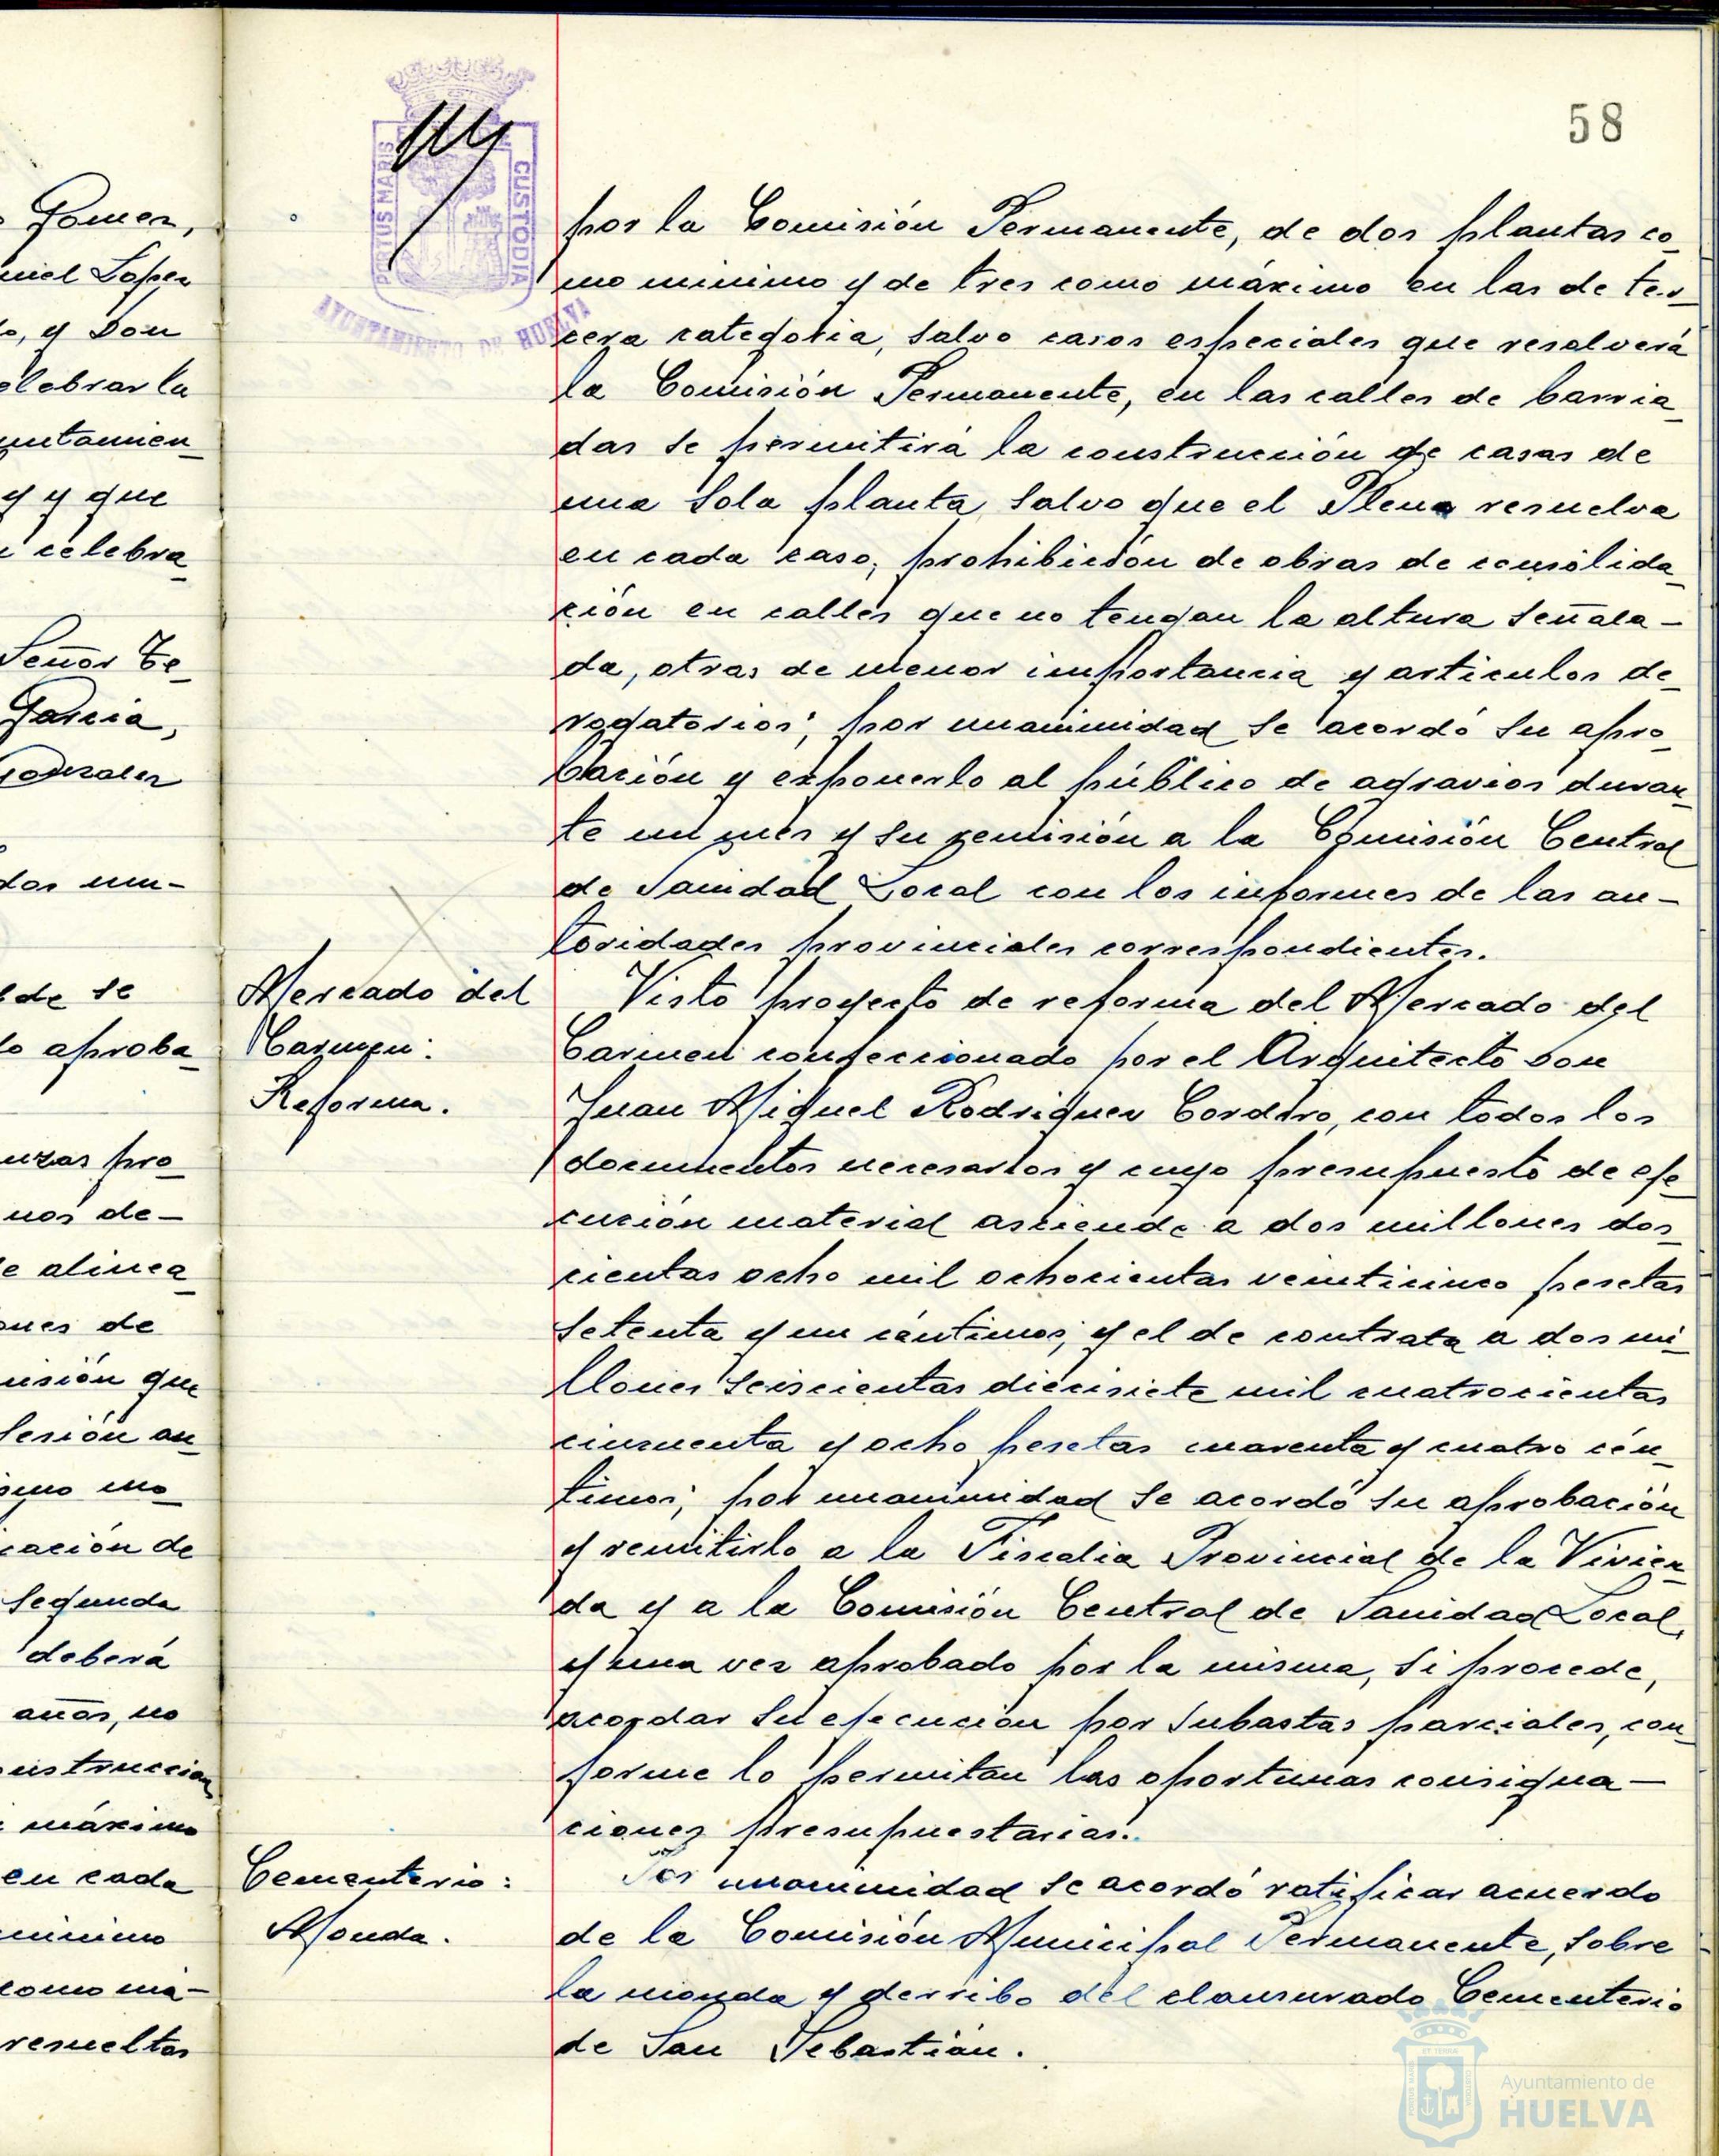 Gomez,
Lopez
y Don
celebrar la
yuntamien
y que
celebra
Señor Te
Garcia,
Gonzalez
de se
lo aproba
nzas pro
nos de-
e alinea
ones de
sión que
sesión an
cación de
segunda
deberá
años, no
onstruccion
máximo
en cada
minimo
como má-
resueltos
58
PORTUS MARIS
CUSTODIA
AYUNTAMIENTO DE HUELVA
por la Comisión Permanente, de dos plantas co
mo minimo y de tres como máximo en las de ter
cera categoria, salvo casos especiales que resolverá
la Comisión Permanente, en las calles de barria
das se permitirá la construcción de casas de
una sola planta, salvo que el Pleno resuelva
en cada caso; prohibición de obras de consolida
ción en calles que no tengan la altura señala-
da, otras de menor importancia y articulos de
rogatorios; por unanimidad se acordó su apro
bación y exponerlo al público de agravios duran
te un mes y su remisión a la Comisión Central
de Sanidad Local con los informes de las au-
toridades provinciales correspondientes.
Mercado del
Carmen:
Reforma.
Visto proyecto de reforma del Mercado del
Carmen confeccionado por el Arquitecto Don
Juan Miguel Rodriguez Cordero, con todos los
documentos necesarios y cuyo presupuesto de eje
cución material asciende a dos millones dos
cientas ocho mil ochocientas veinticinco pesetas
setenta y un céntimos; y el de contrata a dos mi
llones seiscientas diecisiete mil cuatrocientas
cincuenta y ocho pesetas cuarenta y cuatro cén
timos; por unanimidad se acordó su aprobación
y remitirlo a la Fiscalia Provincial de la Vivien
da y a la Comisión Central de Sanidad Local,
y una vez aprobado por la misma, si procede,
acordar su ejecución por subastas parciales, con
forme lo permitan las oportunas consigna-
ciones presupuestarias.
Cementerio:
Monda.
Por unanimidad se acordó ratificar acuerdo
de la Comisión Municipal Permanente, sobre
la monda y derribo del clausurado Cementerio
de San Sebastián.
Ayuntamiento de
HUELVA